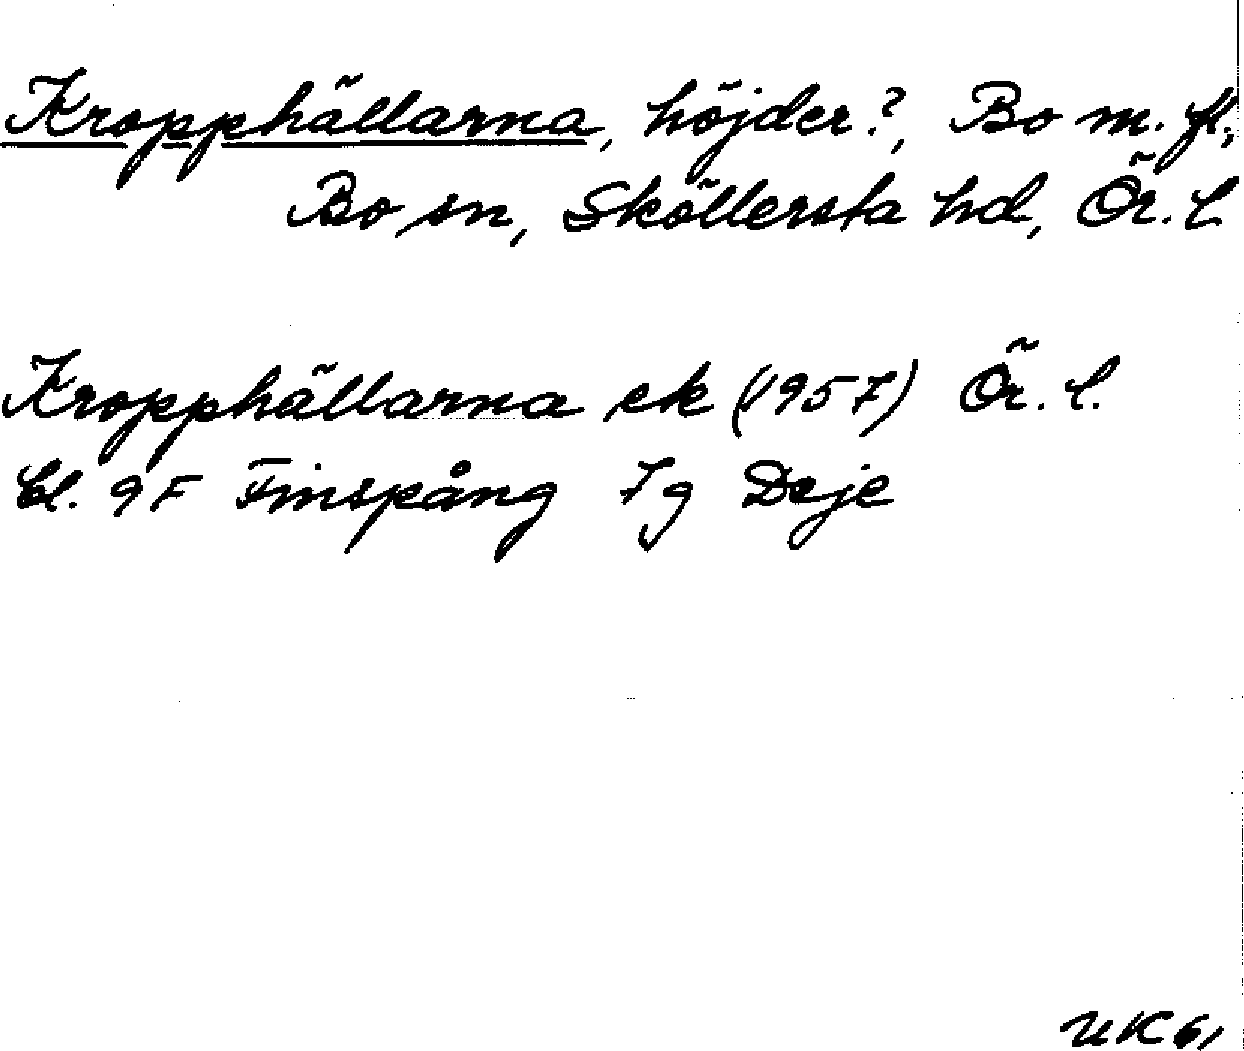 Kropphällarna, höjder?, Bo m. fl.,
Bo sn, Sköllersta hd, Ör. l.
Kropphällarna ek (1957) Ör. l.
bl. 9F Finspång 7g Deje
UK 61